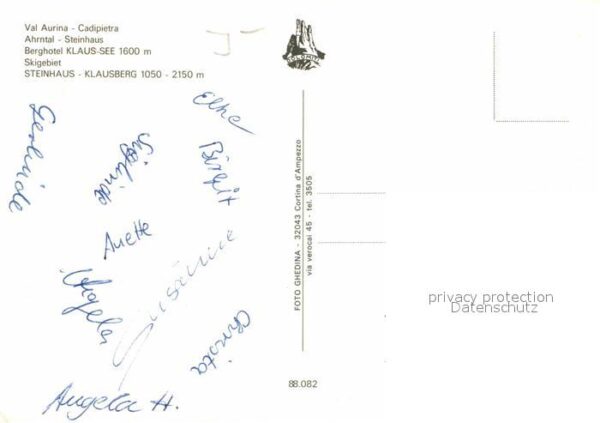 Val Aurina - Cadipietra
Ahrntal - Steinhaus
Berghotel KLAUS-SEE 1600 m
Skigebiet
STEINHAUS - KLAUSBERG 1050 - 2150 m
DOLOMITI
Elke
Gerlinde
Sieglinde
Birgit
Anette
Angela
Susanne
Christa
Angela H.
FOTO GHEDINA - 32043 Cortina d'Ampezzo
via verocai 45 - tel. 3505
88.082
privacy protection
Datenschutz